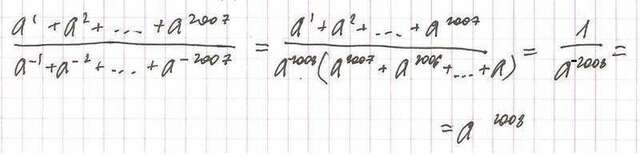 \frac{a^1 + a^2 + ... + a^{2007}}{a^{-1} + a^{-2} + ... + a^{-2007}} = \frac{a^1 + a^2 + ... + a^{2007}}{a^{-2008}(a^{2007} + a^{2006} + ... + a)} = \frac{1}{a^{-2008}} =
= a^{2008}